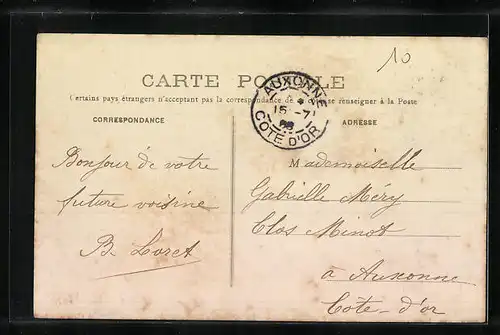 10
CARTE POSTALE
(Certains pays étrangers n'acceptant pas la correspondance de se renseigner à la Poste
AUXONNE
15 -7
COTE D'OR
CORRESPONDANCE
ADRESSE
Bonjour de votre
future voisine
B. Loret
Mademoiselle
Gabrielle Méry
Clos Minot
à Auxonne
Côte-d'or